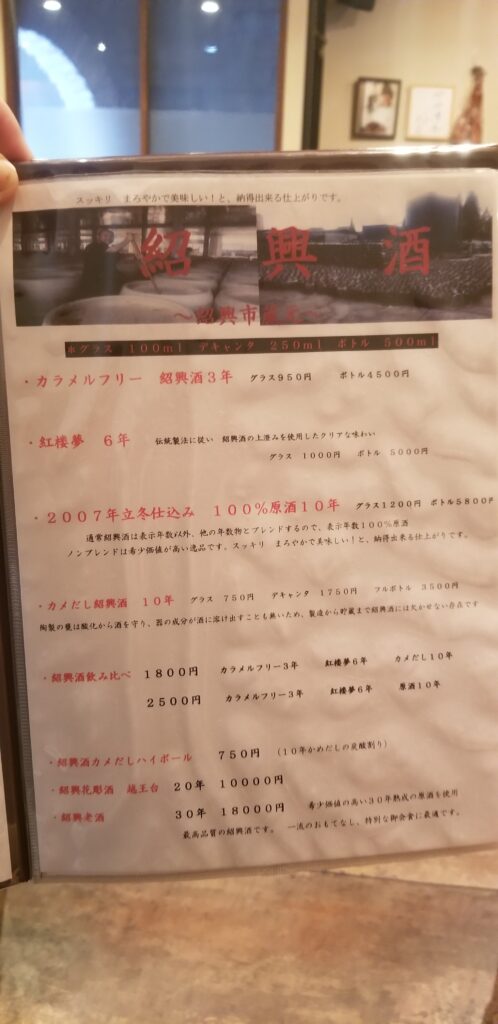 スッキリ まろやかで美味しい！と、納得出来る仕上がりです。
紹興酒
～紹興市
※グラス 100ml デキャンタ 250ml ボトル 500ml
・カラメルフリー 紹興酒3年 グラス950円 ボトル4500円
・紅楼夢 6年 伝統製法に従い 紹興酒の上澄みを使用したクリアな味わい
グラス 1000円 ボトル 5000円
・2007年立冬仕込み 100%原酒10年 グラス1200円 ボトル5800円
通常紹興酒は表示年数以外、他の年数物とブレンドするので、表示年数100%原酒
ノンブレンドは希少価値が高い逸品です。スッキリ まろやかで美味しい！と、納得出来る仕上がりです。
・カメだし紹興酒 10年 グラス 750円 デキャンタ 1750円 フルボトル 3500円
陶製の甕は酸化から酒を守り、器の成分が酒に溶け出すことも無いため、製造から貯蔵まで紹興酒には欠かせない存在です
・紹興酒飲み比べ 1800円 カラメルフリー3年 紅楼夢6年 カメだし10年
2500円 カラメルフリー3年 紅楼夢6年 原酒10年
・紹興酒カメだしハイボール 750円 (10年かめだしの炭酸割り)
・紹興花彫酒 越王台 20年 10000円
・紹興老酒 30年 18000円 希少価値の高い30年熟成の原酒を使用
最高品質の紹興酒です。 一流のおもてなし、特別な御会食に最適です。